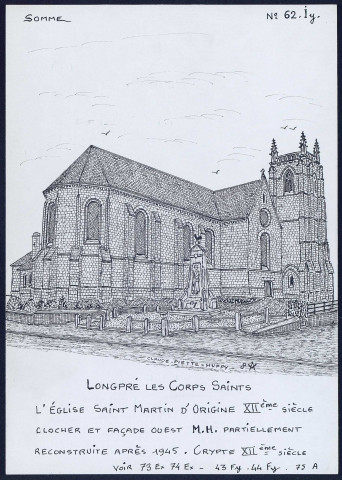 SOMME
No 62. Iy.
LONGPRÉ LES CORPS SAINTS
L'ÉGLISE SAINT MARTIN D'ORIGINE XIIème SIÈCLE
CLOCHER ET FAÇADE OUEST M.H. PARTIELLEMENT
RECONSTRUITE APRÈS 1945. CRYPTE XIIème SIÈCLE
VOIR 73 Ex 74 Ex - 43 Fy. 44 Fy. 75 A